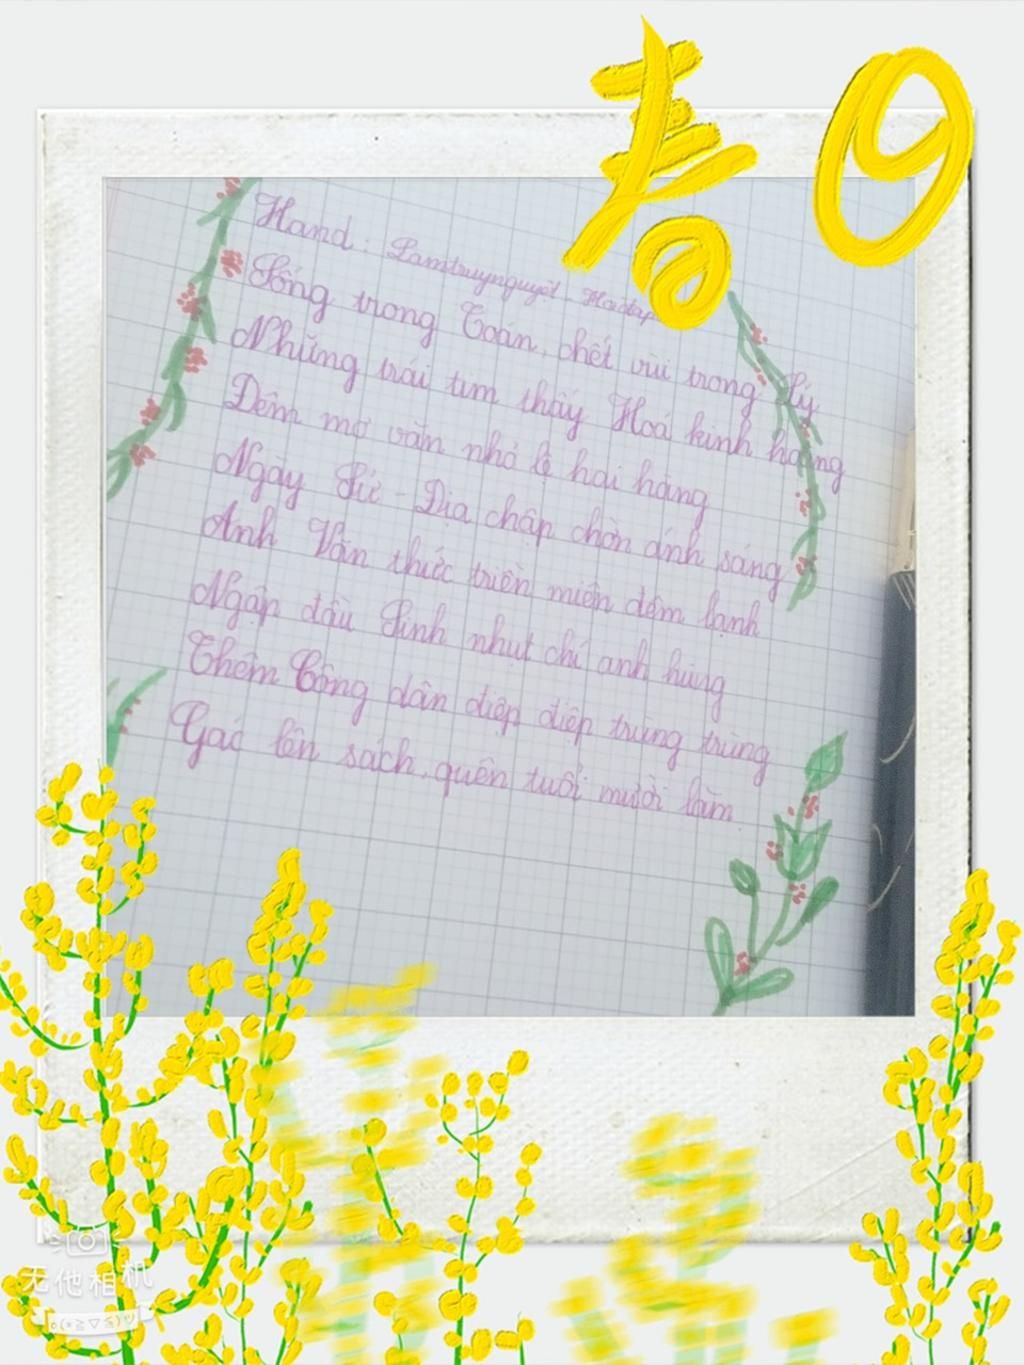 春日
Hand : Lamtruynguyệt - Hoidap
Sống trong Toán, chết vùi trong Lý
Những trái tim thấy Hoá kinh hoàng
Đêm mơ văn nhỏ lệ hai hàng
Ngày Sử - Địa chập chờn ánh sáng
Anh Văn thức triền miên đêm lạnh
Ngập đầu Sinh nhụt chí anh hùng
Thêm Công dân điệp điệp trùng trùng
Gác lên sách, quên tuổi mười lăm
无他相机
o(*≧▽≦)ツ